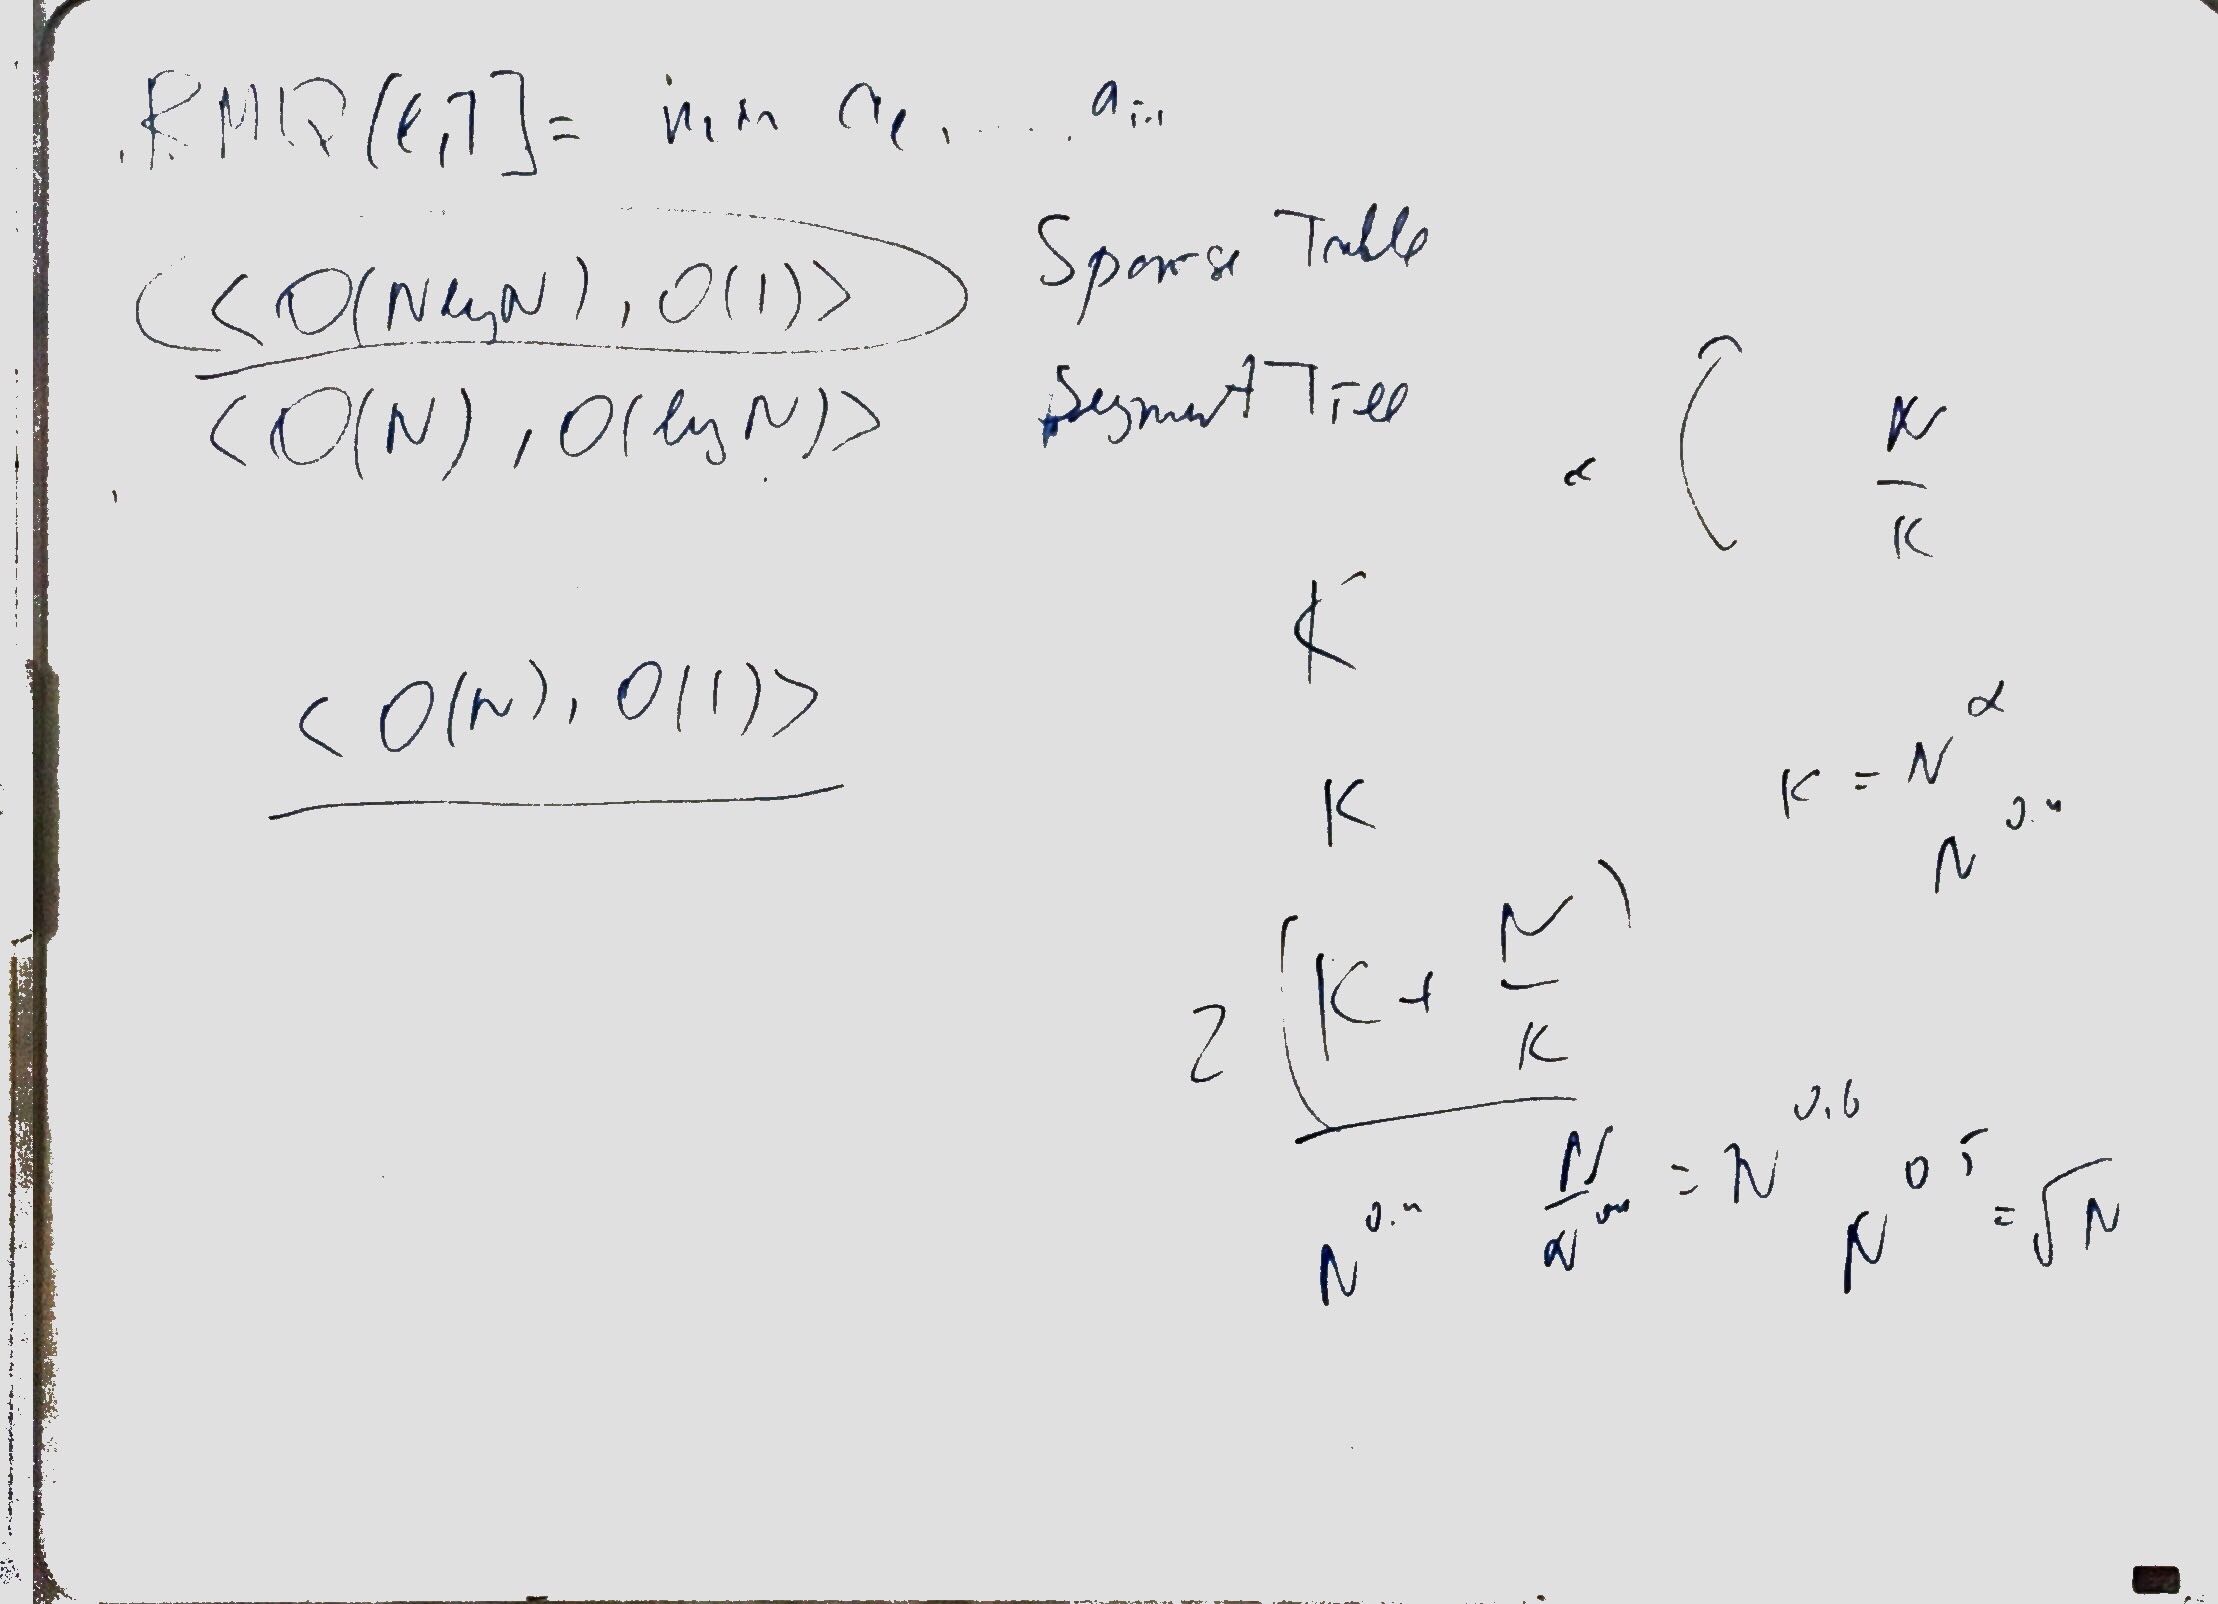 RMQ(l,r] = min a_l, ..... a_{r-1}
<O(N log N), O(1)> Sparse Table
<O(N), O(log N)> Segment Tree
α ( N/K
K
<O(N), O(1)>
K = N^α
K
N^0.4
2 (K + N/K)
N^0.4 N/N^0.4 = N^0.6
N^0.5 = √N